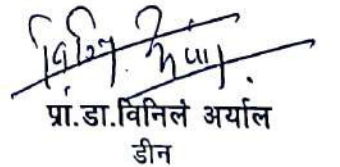 प्रा.डा.विनिल अर्याल
डीन